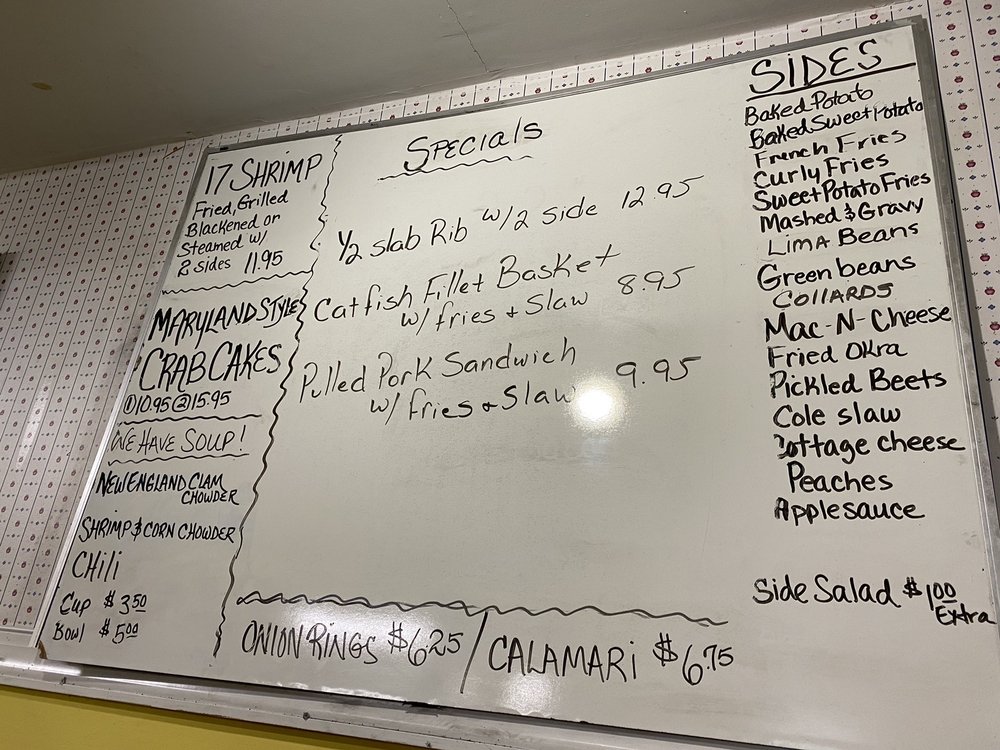 17 SHRIMP
Fried, Grilled
Blackened or
Steamed w/
2 sides 11.95
MARYLAND STYLE
CRAB CAKES
① 10.95 ② 15.95
WE HAVE SOUP!
NEW ENGLAND CLAM
CHOWDER
SHRIMP & CORN CHOWDER
CHILI
CUP $3.50
Bowl $5.00
SPECIALS
1/2 slab Rib w/2 side 12.95
Catfish Fillet Basket
w/ fries + Slaw 8.95
Pulled Pork Sandwich
w/ fries + Slaw 9.95
ONION RINGS $6.25 / CALAMARI $6.75
SIDES
Baked Potato
Baked Sweet Potato
French Fries
Curly Fries
Sweet Potato Fries
Mashed & Gravy
LIMA BEANS
Green beans
COLLARDS
Mac-N-Cheese
Fried Okra
Pickled Beets
Cole slaw
Cottage cheese
Peaches
Applesauce
Side Salad $1.00
Extra